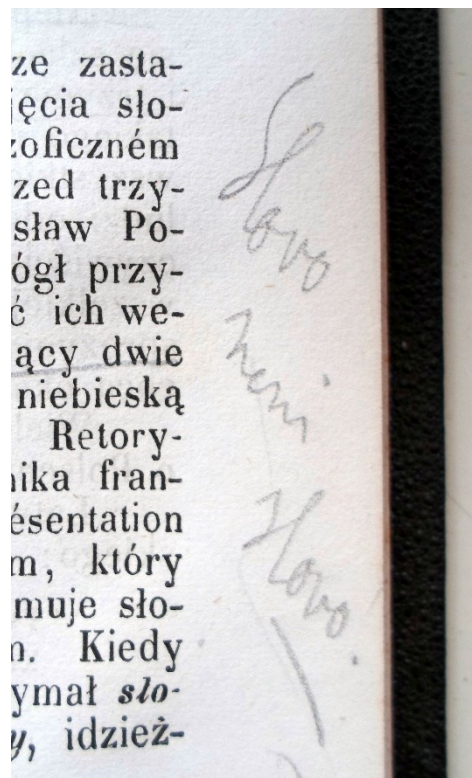 ze zasta-
jęcia sło-
zoficzném
zed trzy-
sław Po-
ógł przy-
ć ich we-
ący dwie
niebieską
Retory-
nika fran-
ésentation
m, który
muje sło-
n. Kiedy
ymał sło-
y, idzież-
Slovo
není
slovo.